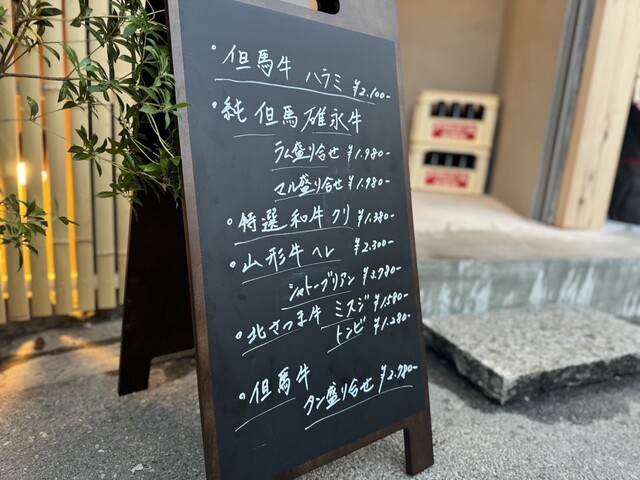 ・但馬牛 ハラミ ¥2.100-
・純 但馬 雄永牛
ラム盛り合せ ¥1.980-
マル盛り合せ ¥1.980-
・特選 和牛 クリ ¥1.380-
・山形牛 ヘレ ¥2.300-
シャトーブリアン ¥3.780-
・北さつま牛 ミスジ ¥1.580-
トンビ ¥1.280-
・但馬牛
タン盛り合せ ¥2.780-